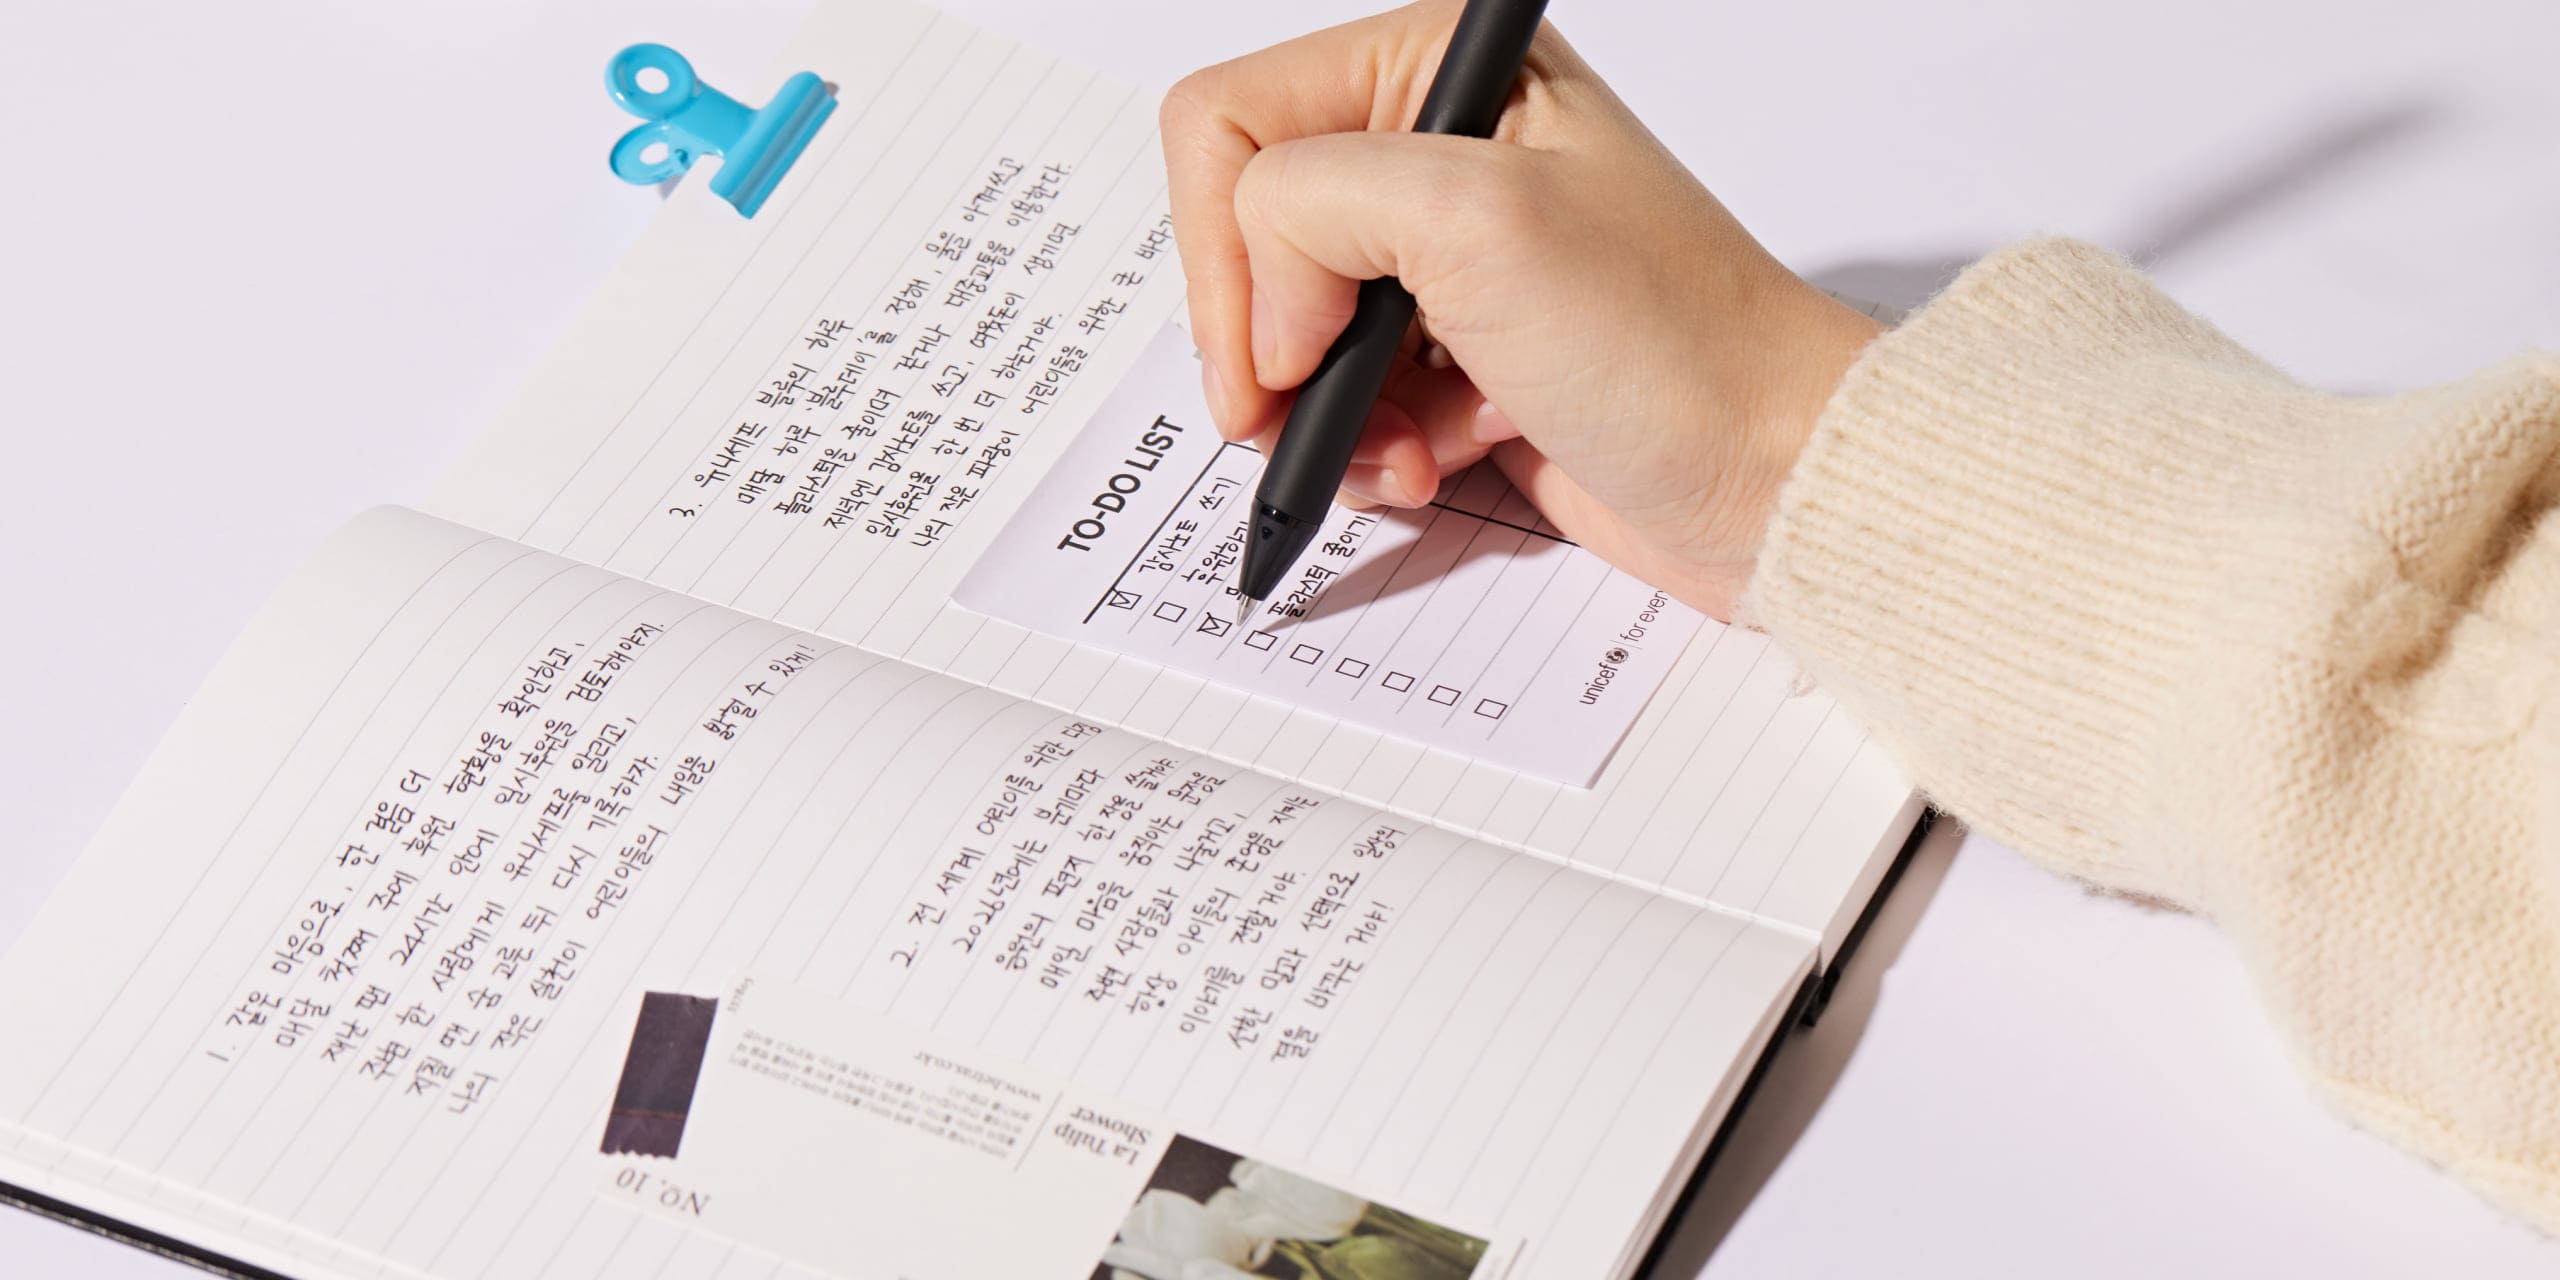 1. 같은 마음으로, 한 걸음 더
매달 첫째 주에 후원 현황을 확인하고,
재난 땐 24시간 안에 일시후원을 검토해야지.
주변 한 사람에게 유니세프를 알리고,
지칠 땐 숨 고른 뒤 다시 기록하자.
나의 작은 실천이 어린이들의 내일을 밝힐 수 있게!
2. 전 세계 어린이를 위한
2026년에는 분기마다
응원의 편지 한 장을 쓸거야.
매일 마음을 움직이는 문장을
주변 사람들과 나눌거고,
항상 아이들의 존엄을 지키는
이야기를 전할거야.
선한 말과 선택으로 일상의
결을 바꾸는 거야!
3. 유니세프 블루의 하루
매달 하루, '블루데이'를 정해, 물을 아껴쓰고
플라스틱을 줄이며 걷거나 대중교통을 이용한다.
저녁엔 감사노트를 쓰고, 여윳돈이 생기면
일시후원을 한 번 더 하는거야.
나의 작은 파랑이 어린이들을 위한 큰
TO-DO LIST
감사노트 쓰기
후원하기
플라스틱 줄이기
unicef for every
NO. 10
La Tulip
Shower
www.hetras.co.kr